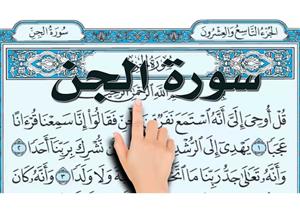 الجزء التاسع والعشرون
سورة الجن
سورة الجن
قُلْ أُوحِيَ إِلَىَّ أَنَّهُ ٱسْتَمَعَ نَفَرٌ فَقَالُوٓا۟ إِنَّا سَمِعْنَا قُرْءَانًا
عَجَبًا ١ يَهْدِىٓ إِلَى ٱلرُّشْدِ نُّشْرِكَ بِرَبِّنَآ أَحَدًا ٢
وَأَنَّهُۥ تَعَٰلَىٰ جَدُّ رَبِّنَا مَا ٱتَّخَذَ وَلَا وَلَدًا ٣ وَأَنَّهُۥ كَانَ